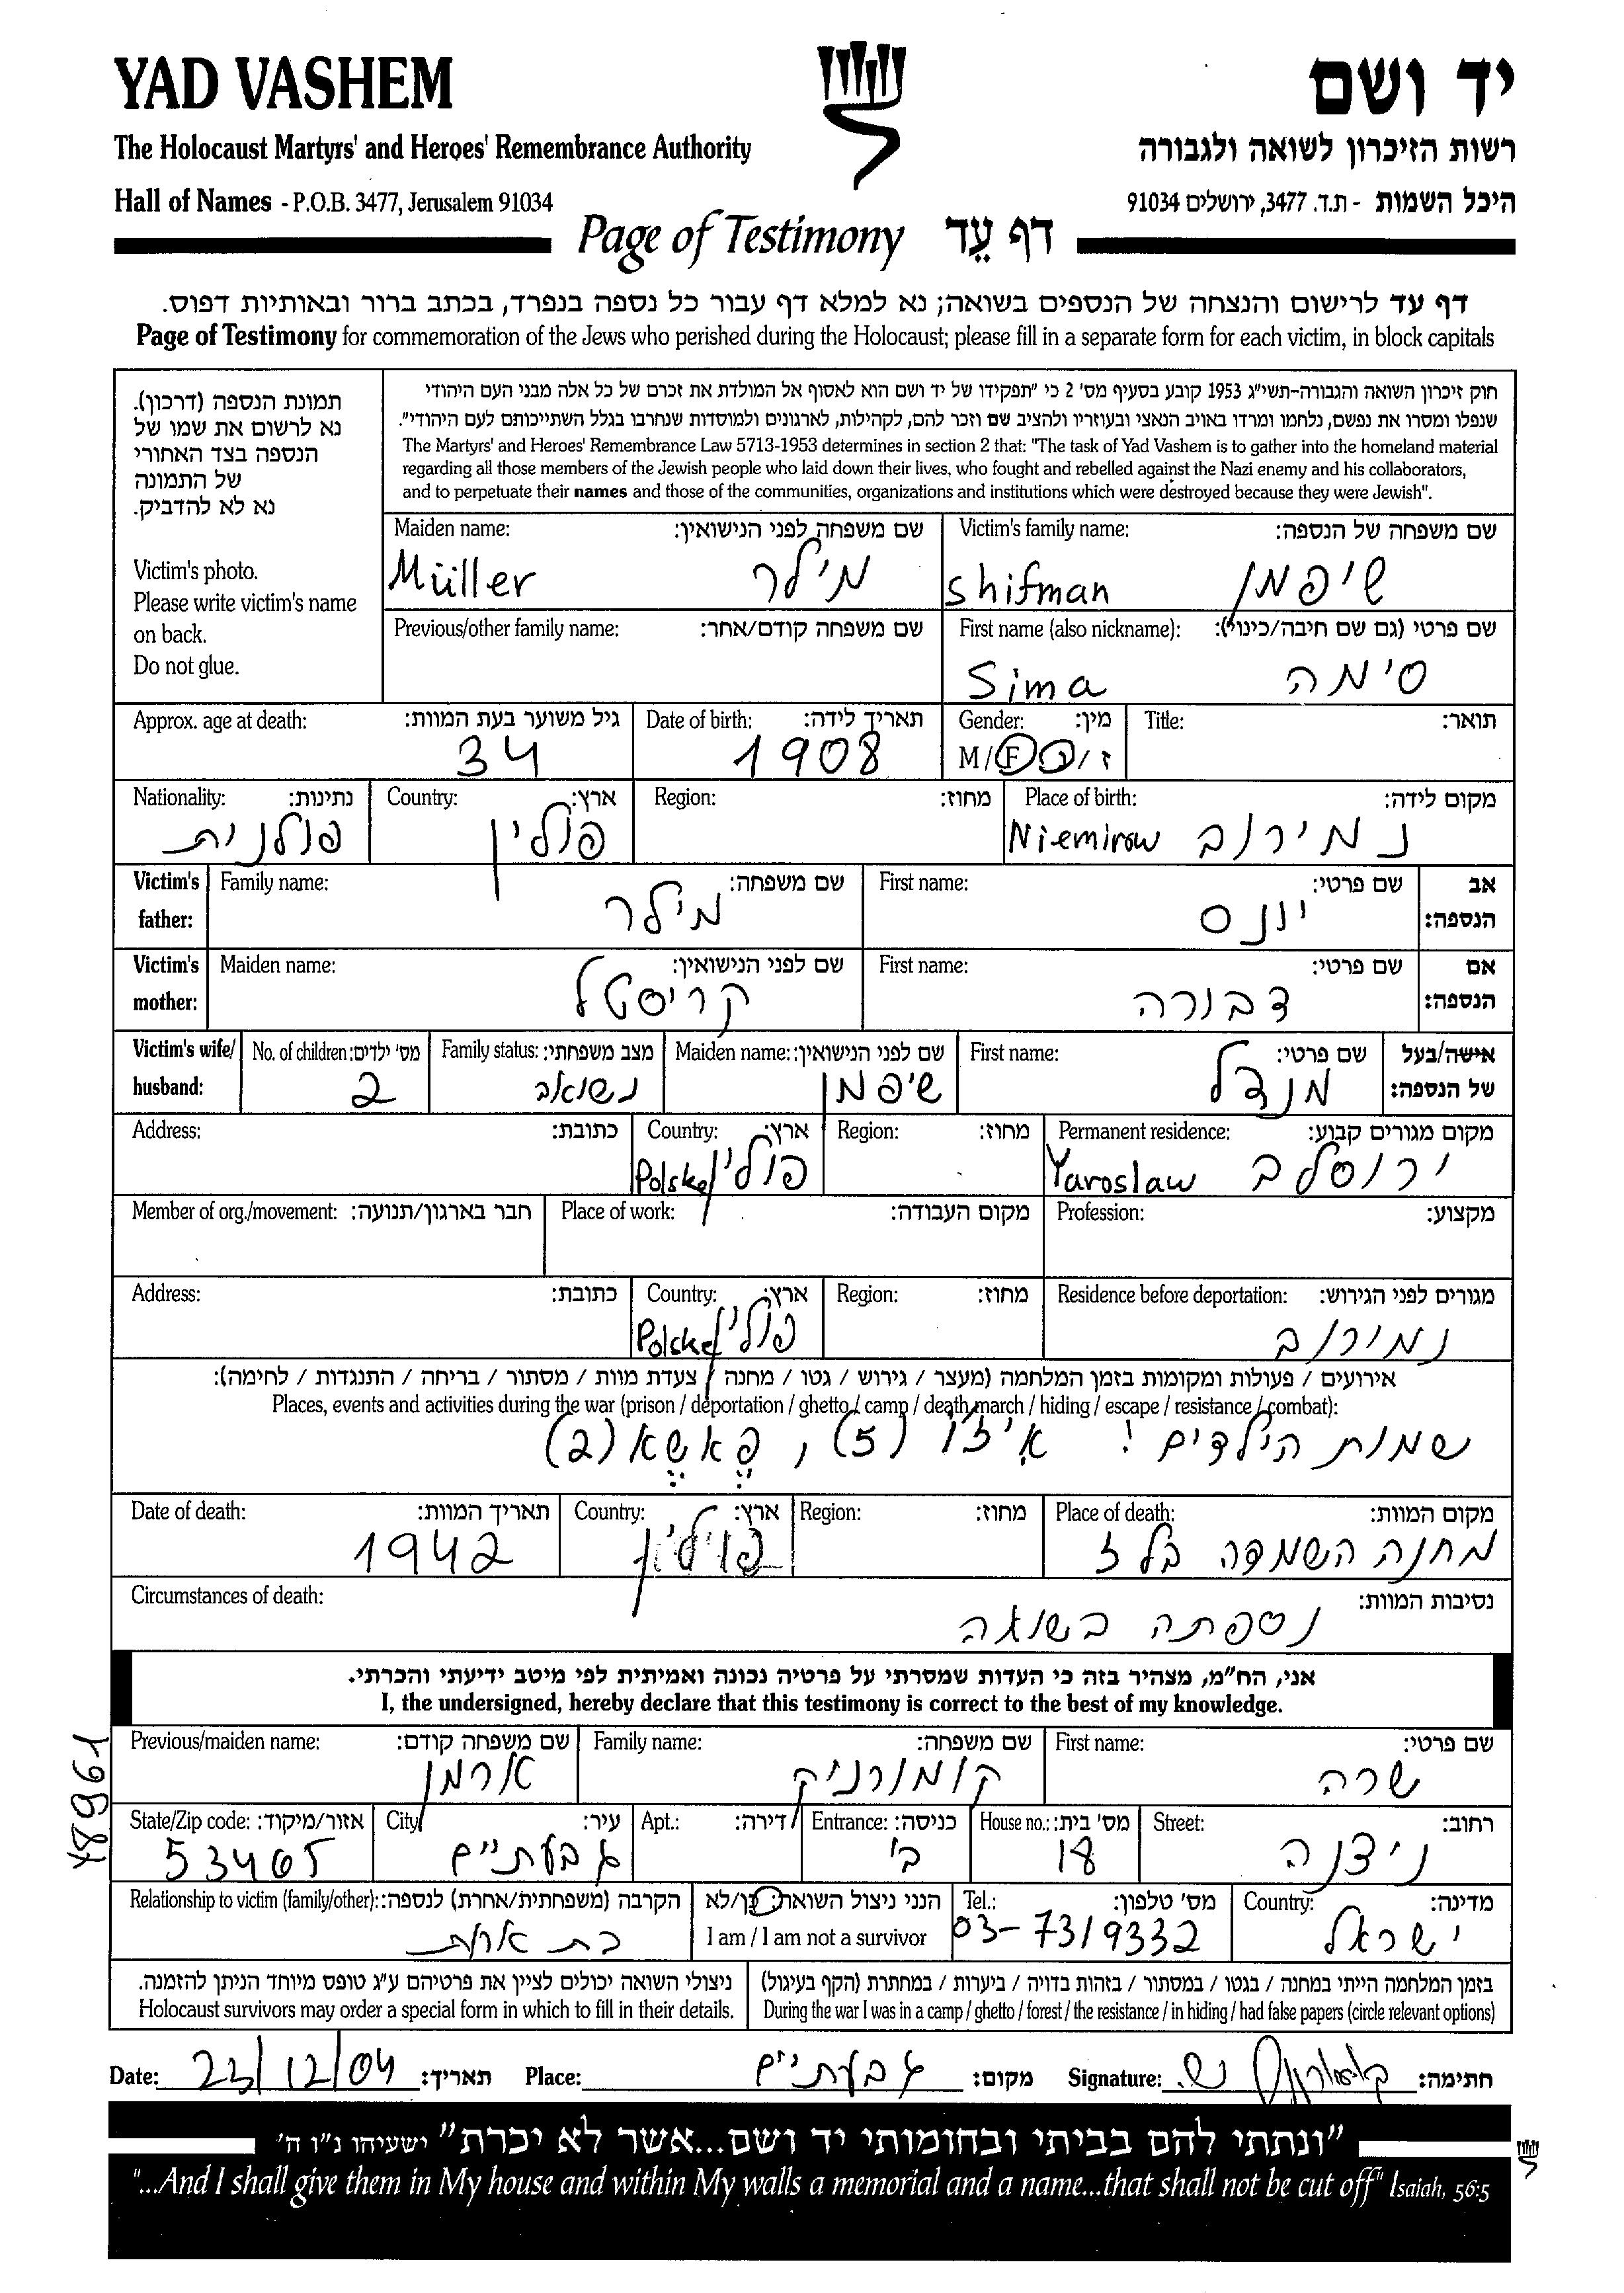 YAD VASHEM
יד ושם
The Holocaust Martyrs' and Heroes' Remembrance Authority
רשות הזיכרון לשואה ולגבורה
Hall of Names - P.O.B. 3477, Jerusalem 91034
היכל השמות - ת.ד. 3477, ירושלים 91034
Page of Testimony דף עֵד
דף עד לרישום והנצחה של הנספים בשואה; נא למלא דף עבור כל נספה בנפרד, בכתב ברור ובאותיות דפוס.
Page of Testimony for commemoration of the Jews who perished during the Holocaust; please fill in a separate form for each victim, in block capitals
תמונת הנספה (דרכון).
נא לרשום את שמו של
הנספה בצד האחורי
של התמונה
נא לא להדביק.
Victim's photo.
Please write victim's name
on back.
Do not glue.
חוק זיכרון השואה והגבורה-תשי"ג 1953 קובע בסעיף מס' 2 כי "תפקידו של יד ושם הוא לאסוף אל המולדת את זכרם של כל אלה מבני העם היהודי
שנפלו ומסרו את נפשם, נלחמו ומרדו באויב הנאצי ובעוזריו ולהציב שם וזכר להם, לקהילות, לארגונים ולמוסדות שנחרבו בגלל השתייכותם לעם היהודי".
The Martyrs' and Heroes' Remembrance Law 5713-1953 determines in section 2 that: "The task of Yad Vashem is to gather into the homeland material
regarding all those members of the Jewish people who laid down their lives, who fought and rebelled against the Nazi enemy and his collaborators,
and to perpetuate their names and those of the communities, organizations and institutions which were destroyed because they were Jewish".
Victim's family name: שם משפחה של הנספה:
Shifman שיפמן
Maiden name: שם משפחה לפני הנישואין:
Müller מילר
First name (also nickname): שם פרטי (גם שם חיבה/כינוי):
Sima סימה
Previous/other family name: שם משפחה קודם/אחר:
Title: תואר:
Gender: מין:
M/F ז/נ
Date of birth: תאריך לידה:
1908
Approx. age at death: גיל משוער בעת המוות:
34
Place of birth: מקום לידה:
Niemirow נמירוב
Region: מחוז:
Country: ארץ:
פולין
Nationality: נתינות:
פולנית
Victim's father: אב הנספה:
First name: שם פרטי:
יונס
Family name: שם משפחה:
מילר
Victim's mother: אם הנספה:
First name: שם פרטי:
דבורה
Maiden name: שם לפני הנישואין:
קריסטל
Victim's wife/husband: אישה/בעל של הנספה:
First name: שם פרטי:
מנדל
Maiden name: שם לפני הנישואין:
שיפמן
Family status: מצב משפחתי:
נשואה
No. of children: מס' ילדים:
2
Permanent residence: מקום מגורים קבוע:
Yaroslaw ירוסלב
Region: מחוז:
Country: ארץ:
Polska פולין
Address: כתובת:
Profession: מקצוע:
Place of work: מקום העבודה:
Member of org./movement: חבר בארגון/תנועה:
Residence before deportation: מגורים לפני הגירוש:
נמירוב
Region: מחוז:
Country: ארץ:
Polska פולין
Address: כתובת:
אירועים / פעולות ומקומות בזמן המלחמה (מעצר / גירוש / גטו / מחנה / צעדת מוות / מסתור / בריחה / התנגדות / לחימה):
Places, events and activities during the war (prison / deportation / ghetto / camp / death march / hiding / escape / resistance / combat):
שמות הילדים: איזיו (5), פֶאשֶא (2)
Place of death: מקום המוות:
מחנה השמדה בלז
Region: מחוז:
Country: ארץ:
פולין
Date of death: תאריך המוות:
1942
Circumstances of death: נסיבות המוות:
נספתה בשואה
אני, הח"מ, מצהיר בזה כי העדות שמסרתי על פרטיה נכונה ואמיתית לפי מיטב ידיעתי והכרתי.
I, the undersigned, hereby declare that this testimony is correct to the best of my knowledge.
First name: שם פרטי:
שרה
Family name: שם משפחה:
קומורניק
Previous/maiden name: שם משפחה קודם:
ארמן
Street: רחוב:
ניצנה
House no.: מס' בית:
18
Entrance: כניסה:
ב'
Apt.: דירה:
City: עיר:
גבעתיים
State/Zip code: אזור/מיקוד:
53465
Country: מדינה:
ישראל
Tel.: מס' טלפון:
03-7319332
הנני ניצול השואה: כן/לא
I am / I am not a survivor
Relationship to victim (family/other): הקרבה (משפחתית/אחרת) לנספה:
בת אחות
בזמן המלחמה הייתי במחנה / בגטו / במסתור / בזהות בדויה / ביערות / במחתרת (הקף בעיגול)
During the war I was in a camp / ghetto / forest / the resistance / in hiding / had false papers (circle relevant options)
ניצולי השואה יכולים לציין את פרטיהם ע"ג טופס מיוחד הניתן להזמנה.
Holocaust survivors may order a special form in which to fill in their details.
Date: 23/12/04 תאריך:
Place: גבעתיים מקום:
Signature: חתימה:
48961
"ונתתי להם בביתי ובחומותי יד ושם...אשר לא יכרת" ישעיהו נ"ו ה'
"...And I shall give them in My house and within My walls a memorial and a name...that shall not be cut off" Isaiah, 56:5